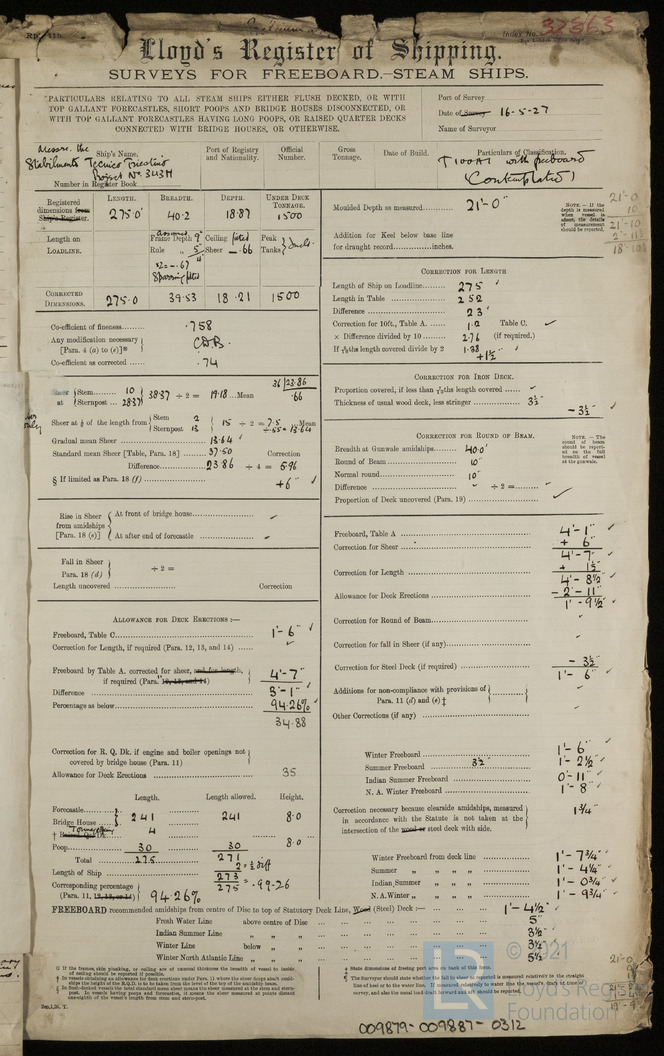 Index No. 37363
Lloyd's Register of Shipping.
SURVEYS FOR FREEBOARD.—STEAM SHIPS.
PARTICULARS RELATING TO ALL STEAM SHIPS EITHER FLUSH DECKED, OR WITH
TOP GALLANT FORECASTLES, SHORT POOPS AND BRIDGE HOUSES DISCONNECTED, OR
WITH TOP GALLANT FORECASTLES HAVING LONG POOPS, OR RAISED QUARTER DECKS
CONNECTED WITH BRIDGE HOUSES, OR OTHERWISE.
Port of Survey
Date of Survey 16-5-27
Name of Surveyor
Messrs. the
Stabilimento Tecnico Triestino
Project No. 343H
Ship's Name.
Number in Register Book
Port of Registry and Nationality.
Official Number.
Gross Tonnage.
Date of Build.
Particulars of Classification.
†100A1 with freeboard
(Contemplated)
Registered dimensions from Ship's Register.
LENGTH. BREADTH. DEPTH. UNDER DECK TONNAGE.
275.0 40.2 18.87 1500
Length on LOADLINE.
Frame Depth 9"
Rule " 5"
Sparring fitted
Ceiling fitted
Sheer — .66
Peak Tanks
CORRECTED DIMENSIONS. 275.0 39.53 18.21 1500
Co-efficient of fineness........ .758
Any modification necessary [Para. 4 (a) to (e)]* C.D.B.
Co-efficient as corrected ........ .74
Sheer at Stem 10 Sternpost 28.37 38.37 ÷ 2 = 19.18 Mean
36 23.86
.66
Sheer at ⅛ of the length from Stem 2 Sternpost 13 15 ÷ 2 = 7.5 Mean
÷ .55 = 13.64
Gradual mean Sheer 13.64
Standard mean Sheer [Table, Para. 18] 37.50 Correction
Difference 23.86 ÷ 4 = 5.96
§ If limited as Para. 18 (f) +6"
Rise in Sheer from amidships [Para. 18 (e)]
At front of bridge house
At after end of forecastle
Fall in Sheer Para. 18 (d) ÷ 2 =
Length uncovered Correction
ALLOWANCE FOR DECK ERECTIONS :—
Freeboard, Table C 1'-6"
Correction for Length, if required (Para. 12, 13, and 14)
Freeboard by Table A. corrected for sheer, and for length, if required (Para. 12, 13, and 14) 4'-7"
Difference 3'-1"
Percentage as below 94.26%
34.88
Correction for R. Q. Dk. if engine and boiler openings not covered by bridge house (Para. 11)
Allowance for Deck Erections 35
Length. Length allowed. Height.
Forecastle
Bridge House 241 241 8.0
Tonnage opening 4
Poop 30 30 8.0
Total 275 271
2 = ½ diff
Length of Ship 273
275 = .99.26
Corresponding percentage (Para. 11, 12, 13, or 14) 94.26%
Moulded Depth as measured 21'-0"
Addition for Keel below base line for draught record inches.
NOTE.—If the depth is measured when vessel is afloat, the details of measurement should be reported.
21'-0
10
21-10
2-11½
18-10½
CORRECTION FOR LENGTH
Length of Ship on Loadline 275
Length in Table 252
Difference 23
Correction for 10ft., Table A. 1.2 Table C.
× Difference divided by 10 2.76 (if required.)
If 6/10ths length covered divide by 2 1.38
+1½
CORRECTION FOR IRON DECK.
Proportion covered, if less than 7/10ths length covered
Thickness of usual wood deck, less stringer 3½
– 3½
CORRECTION FOR ROUND OF BEAM.
Breadth at Gunwale amidships 40.0'
Round of Beam 10"
Normal round 10"
Difference ÷ 2 =
Proportion of Deck uncovered (Para. 19)
NOTE.—The round of beam should be reported on the full breadth of vessel at the gunwale.
Freeboard, Table A 4'-1"
Correction for Sheer + 6"
4'-7"
Correction for Length + 1½
4'-8½
Allowance for Deck Erections – 2'-11
1'-9½"
Correction for Round of Beam
Correction for fall in Sheer (if any)
Correction for Steel Deck (if required) – 3½
1'-6"
Additions for non-compliance with provisions of Para. 11 (d) and (e) ‡
Other Corrections (if any)
Winter Freeboard 1'-6"
Summer Freeboard 3½" 1'-2½"
Indian Summer Freeboard 0'-11"
N. A. Winter Freeboard 1'-8"
Correction necessary because clearside amidships, measured in accordance with the Statute is not taken at the intersection of the wood or steel deck with side. 1¾"
Winter Freeboard from deck line 1'-7¾"
Summer " " " " 1'-4¼"
Indian Summer " " " " 1'-0¾"
N. A. Winter " " " " 1'-9¾"
FREEBOARD recommended amidships from centre of Disc to top of Statutory Deck Line, Wood (Steel) Deck :— 1'-4½"
Fresh Water Line above centre of Disc 5"
Indian Summer Line " " " 3½"
Winter Line below " " 3½"
Winter North Atlantic Line " " " 5½"
LR
© 2021
Lloyd's Register
Foundation
009879-009887-0312